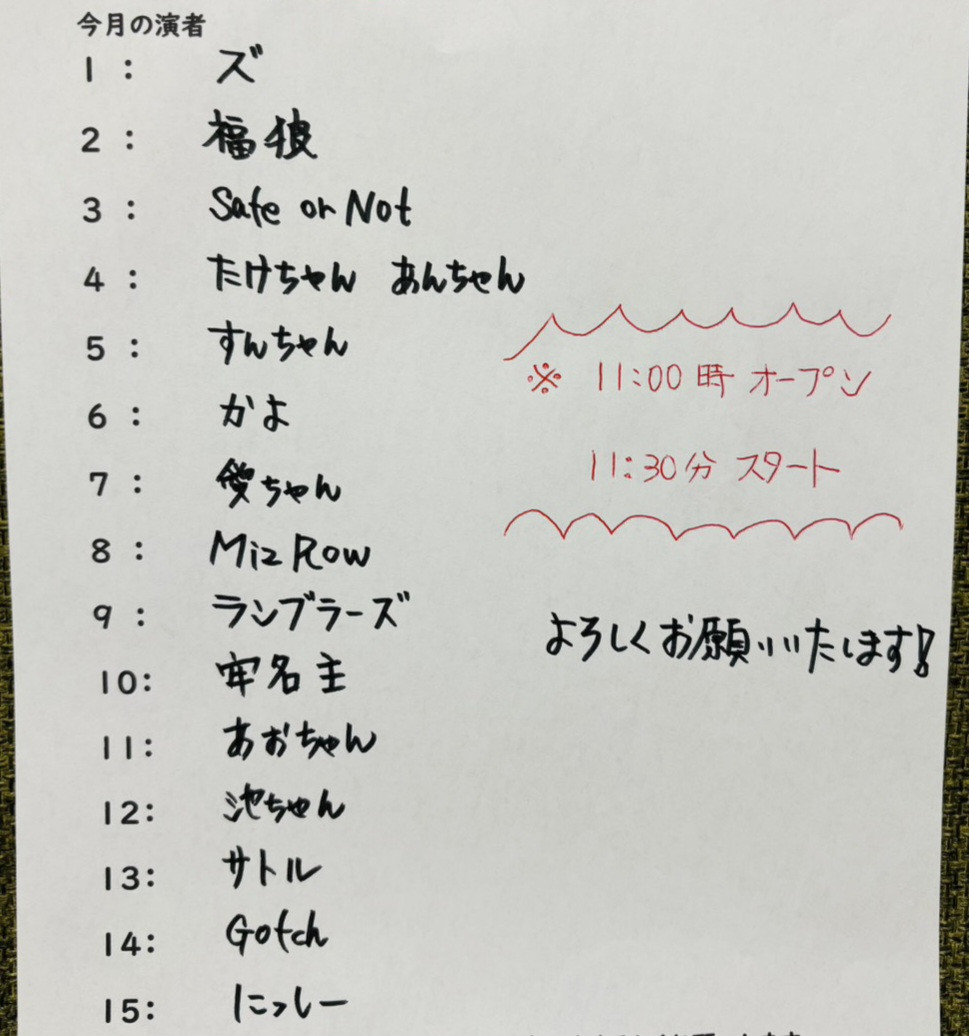 今月の演者
1: ズ
2: 福狼
3: Safe or Not
4: たけちゃん あんちゃん
5: すんちゃん
6: かよ
※ 11:00時 オープン
7: 愛ちゃん
11:30分 スタート
8: Miz Row
9: ランブラーズ
よろしくお願いいたします!
10: 牢名主
11: あおちゃん
12: 池ちゃん
13: サトル
14: Gotch
15: にっしー